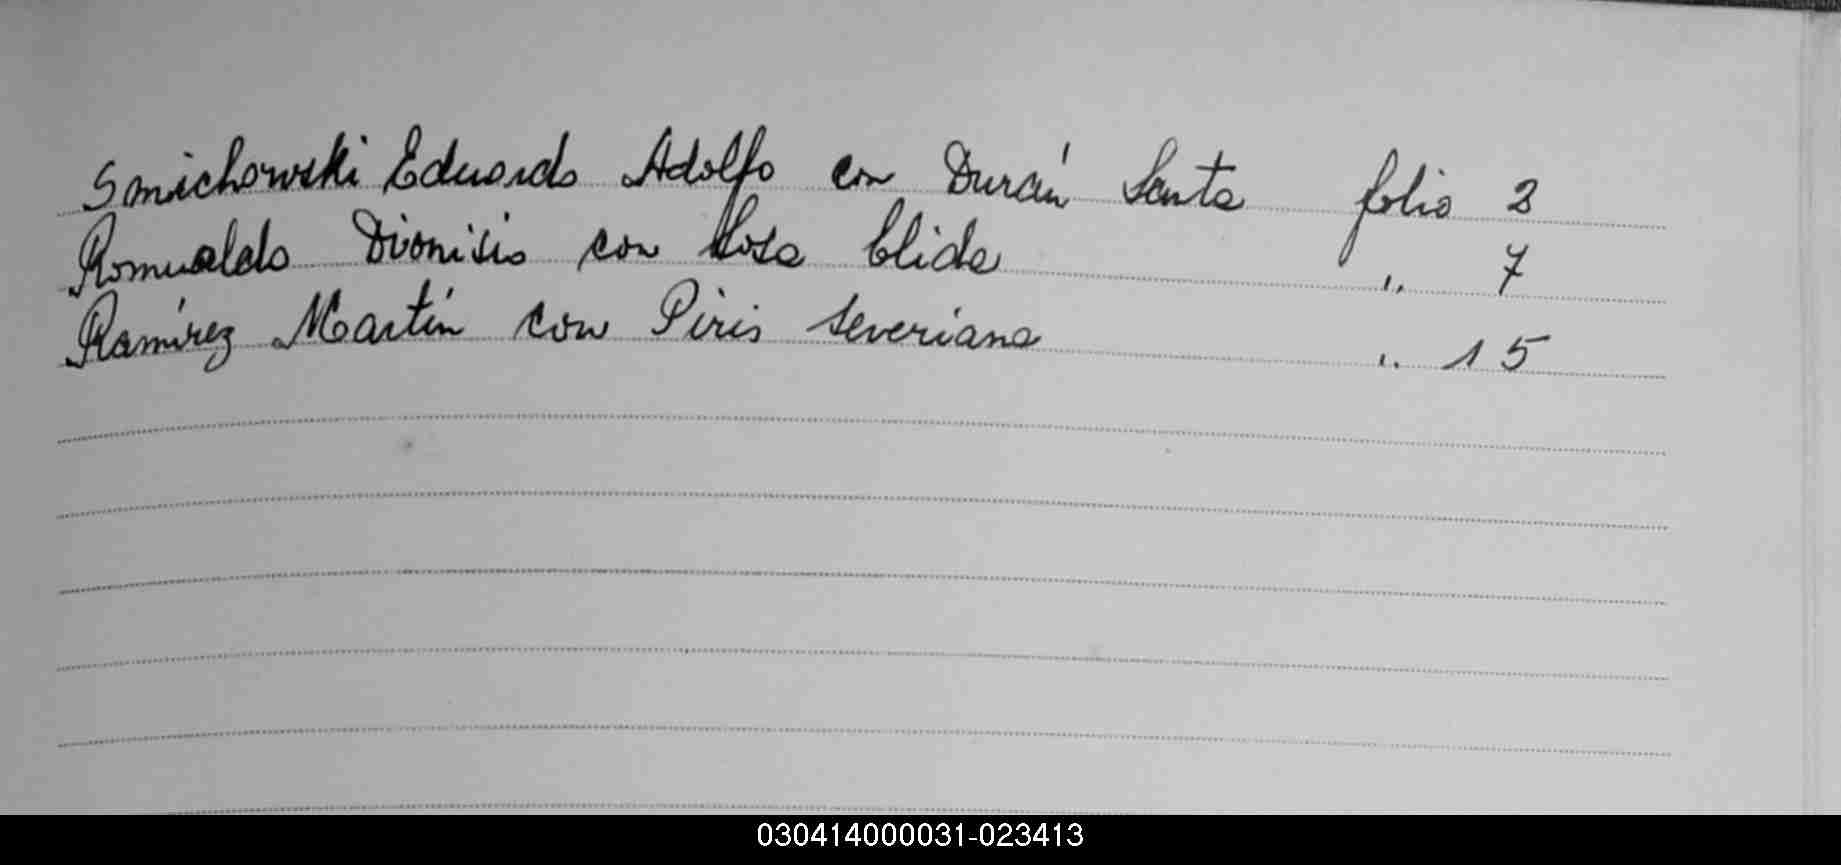 Smichowski Eduardo Adolfo con Durán Santa folio 2
Romualdo Dionisio con Sosa Elida " 7
Ramírez Martín con Piris Severiana " 15
030414000031-023413